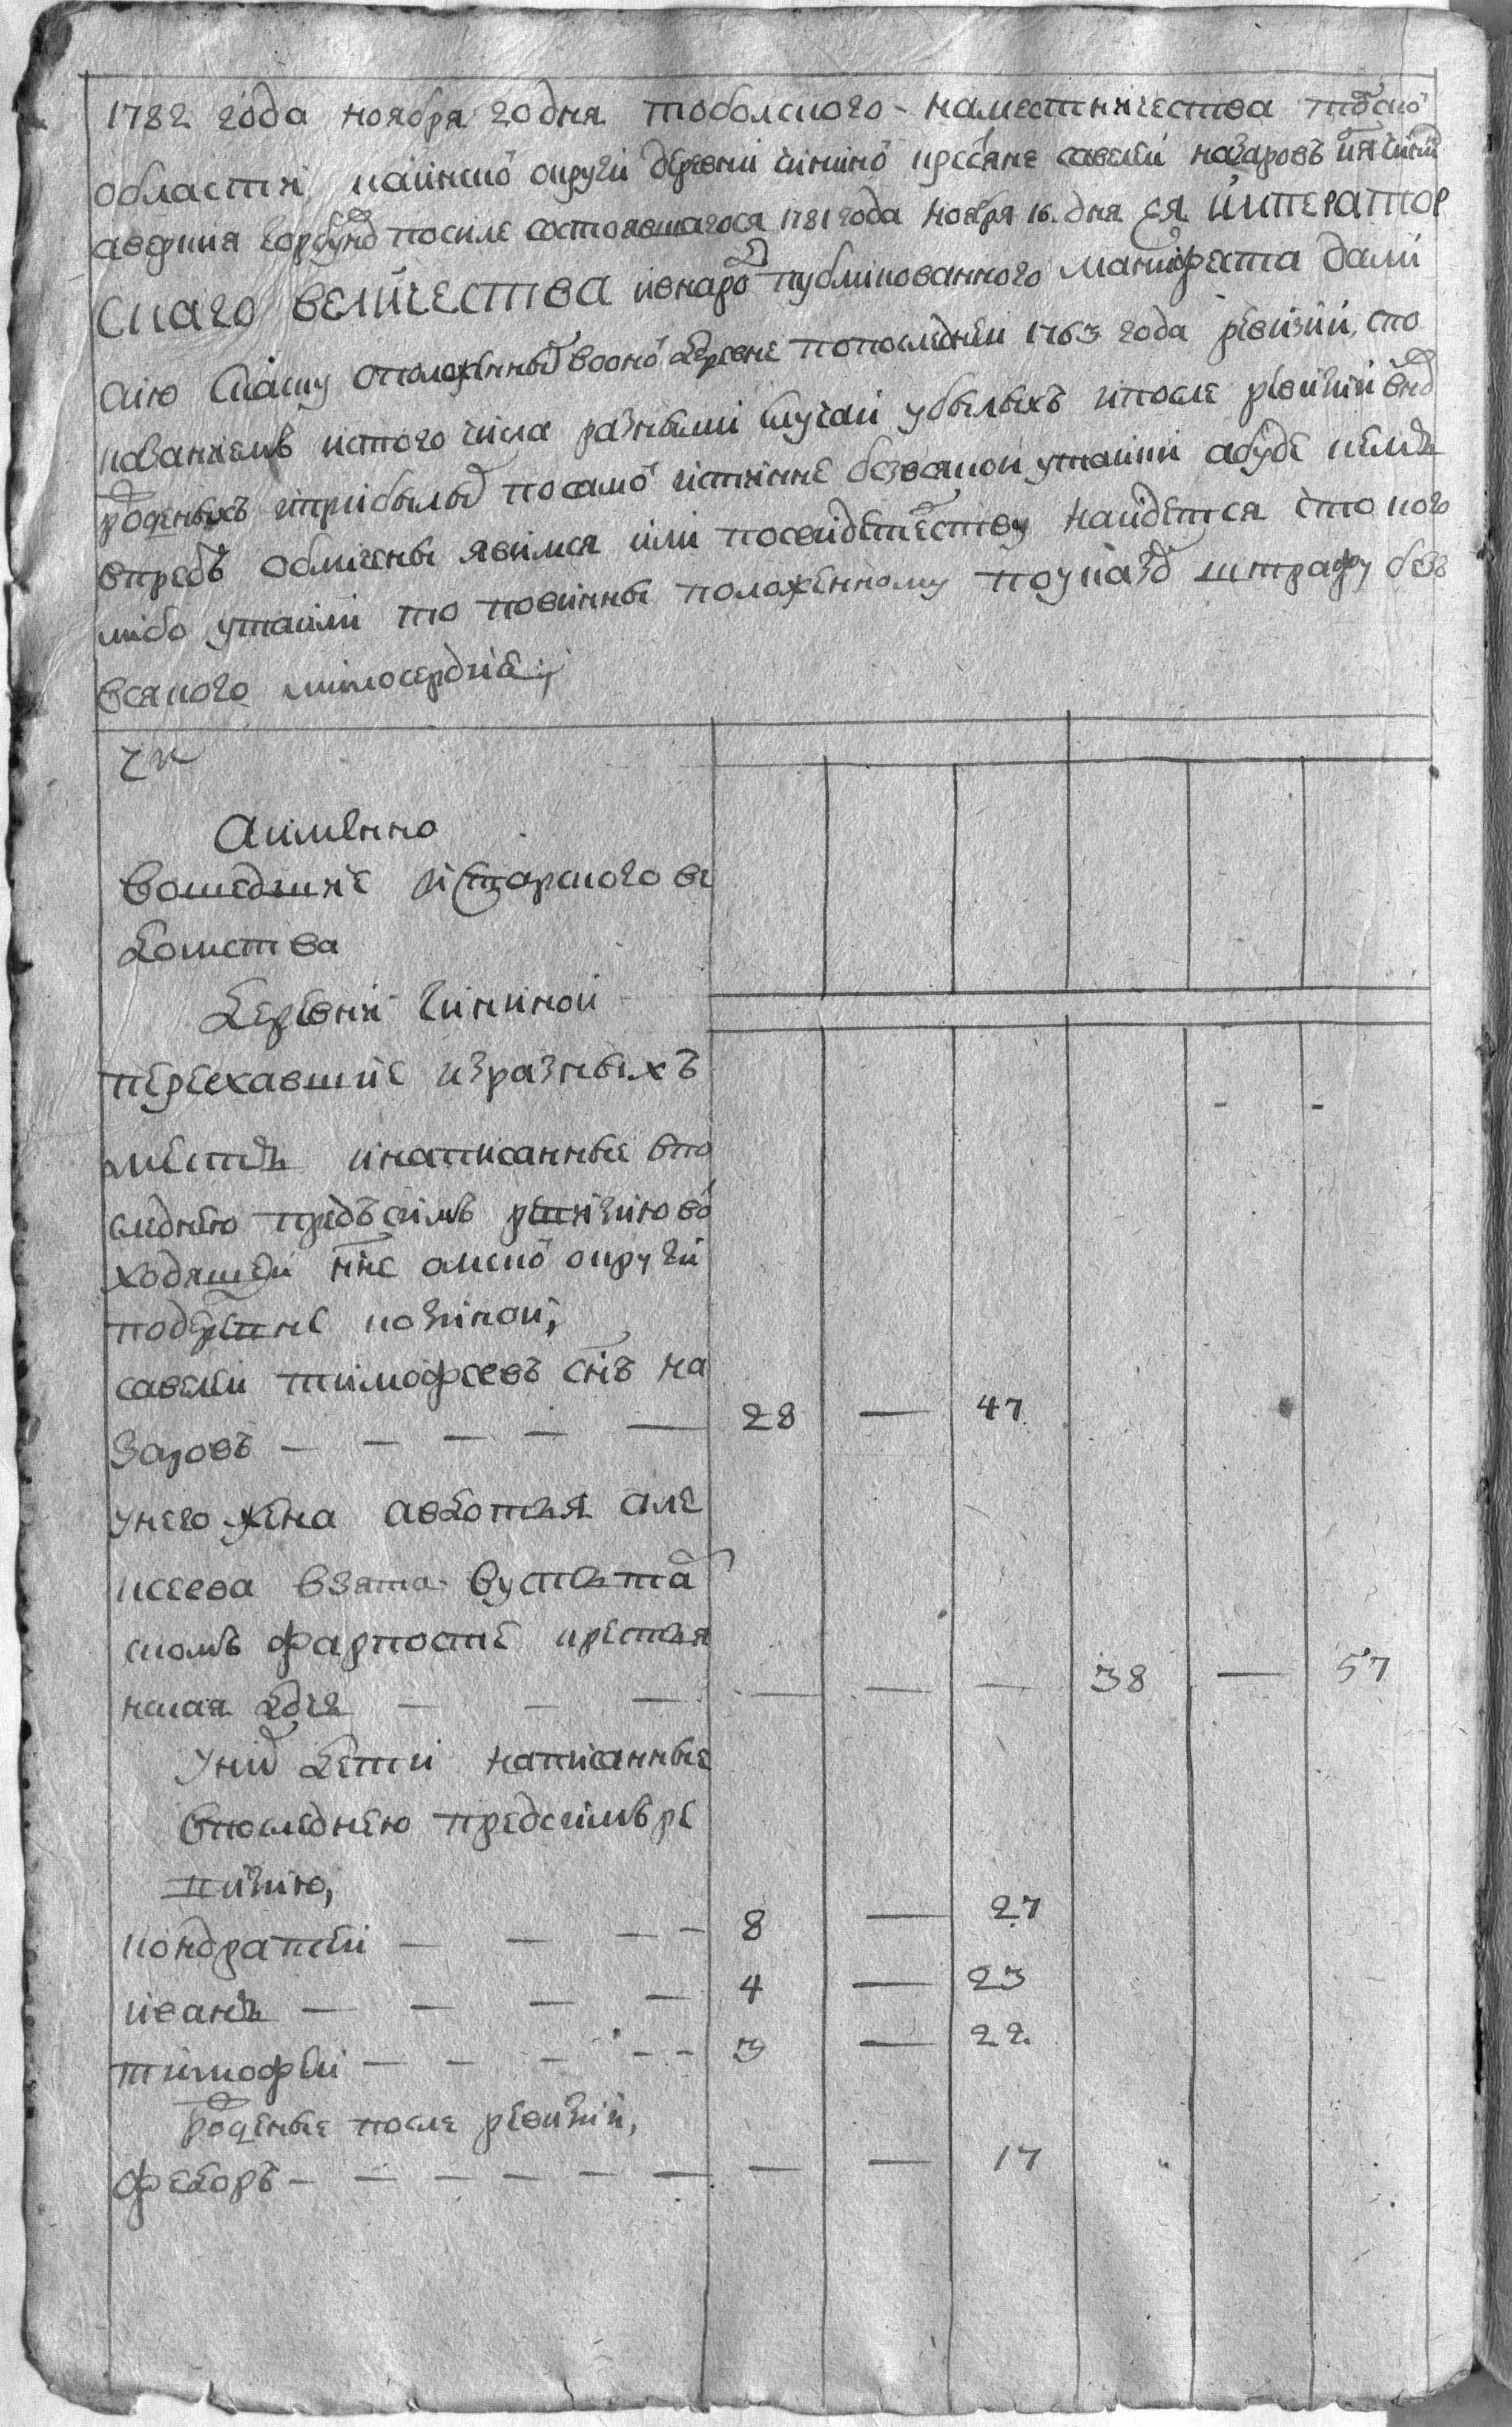 1782 года ноября 20 дня тоболского наместничества томско
области каинско округи деревни чинино кресяне савелей назаровъ
аверкия горбунов по силе состоявшагося 1781 года ноября 16 дня ея император
скаго величества и в народ публикованного манифеста дали
сию скаску о положенных в оно деревне по последней 1763 года ревизии, с по
казанием ис того числа разными случаи убылыхъ и после ревизии внов
рожденыхъ и прибылых по самой истинне без всякой утайки а буде кемъ
впредь обличены явимся или по свидетелству найдется что кого
либо утаили то повинны положенному по указом штрафу безо
всякого милосердия;
Аимянно
вошедшие ис тарского ве
домства
деревни Чининой
переехавшие из разныхъ
местъ и написанные в по
следнею предъ симъ ревизию во
ходящей нне омско округи
по деревне козиной;
савелей тимофеевъ снъ на
заровъ — — — — — 28 — 47
у него жена авдотья але
ксеева взята в устьта
скомъ фарпосте крестья
нская дочь — — — — — — 38 — 57
у них дети написанные
в последнею пред симъ ре
визию,
кондратей — — — — 8 — 27
иванъ — — — — 4 — 23
тимофей — — — — — 3 — 22
рожденые после ревизии,
федоръ — — — — — — — — 17